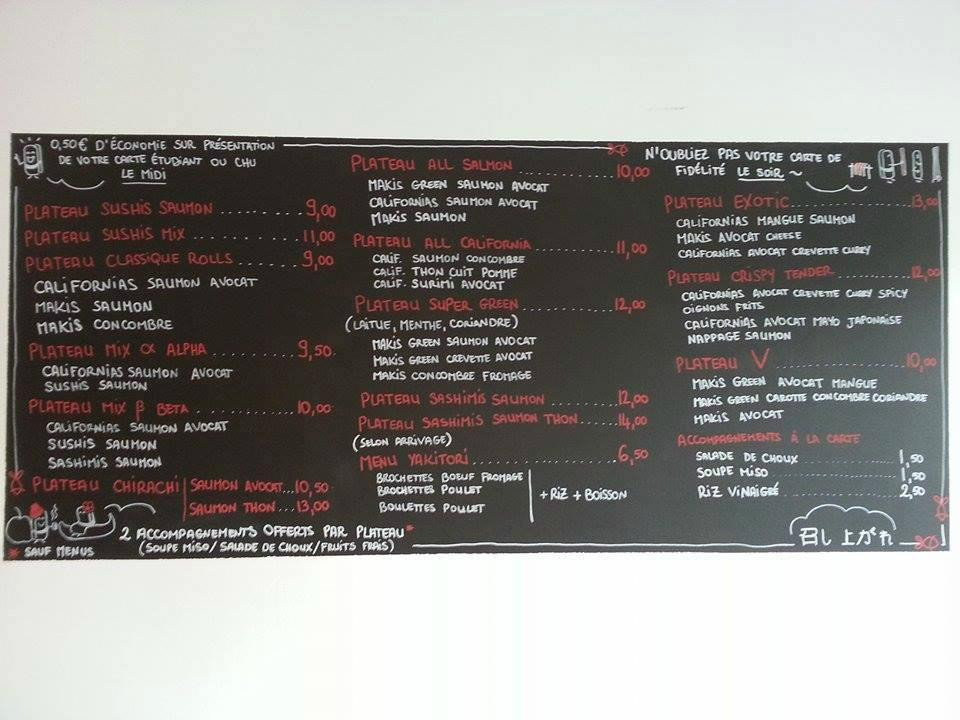 0,50€ D'ÉCONOMIE SUR PRÉSENTATION
DE VOTRE CARTE ÉTUDIANT OU CHU
LE MIDI
PLATEAU SUSHIS SAUMON ........ 9,00
PLATEAU SUSHIS MIX ........... 11,00
PLATEAU CLASSIQUE ROLLS ...... 9,00
CALIFORNIAS SAUMON AVOCAT
MAKIS SAUMON
MAKIS CONCOMBRE
PLATEAU MIX α ALPHA .......... 9,50
CALIFORNIAS SAUMON AVOCAT
SUSHIS SAUMON
PLATEAU MIX β BETA ........... 10,00
CALIFORNIAS SAUMON AVOCAT
SUSHIS SAUMON
SASHIMIS SAUMON
PLATEAU CHIRACHI
SAUMON AVOCAT... 10,50
SAUMON THON.... 13,00
2 ACCOMPAGNEMENTS OFFERTS PAR PLATEAU*
(SOUPE MISO/SALADE DE CHOUX/FRUITS FRAIS)
* SAUF MENUS
PLATEAU ALL SALMON ........... 10,00
MAKIS GREEN SAUMON AVOCAT
CALIFORNIAS SAUMON AVOCAT
MAKIS SAUMON
PLATEAU ALL CALIFORNIA ....... 11,00
CALIF. SAUMON CONCOMBRE
CALIF. THON CUIT POMME
CALIF. SURIMI AVOCAT
PLATEAU SUPER GREEN .......... 12,00
(LAITUE, MENTHE, CORIANDRE)
MAKIS GREEN SAUMON AVOCAT
MAKIS GREEN CREVETTE AVOCAT
MAKIS CONCOMBRE FROMAGE
PLATEAU SASHIMIS SAUMON ...... 12,00
PLATEAU SASHIMIS SAUMON THON..... 14,00
(SELON ARRIVAGE)
MENU YAKITORI ................ 6,50
BROCHETTES BOEUF FROMAGE
BROCHETTES POULET
BOULETTES POULET
+ RIZ + BOISSON
N'OUBLIEZ PAS VOTRE CARTE DE
FIDÉLITÉ LE SOIR ~
PLATEAU EXOTIC ............... 13,00
CALIFORNIAS MANGUE SAUMON
MAKIS AVOCAT CHEESE
CALIFORNIAS AVOCAT CREVETTE CURRY
PLATEAU CRISPY TENDER ........ 12,00
CALIFORNIAS AVOCAT CREVETTE CURRY SPICY
OIGNONS FRITS
CALIFORNIAS AVOCAT MAYO JAPONAISE
NAPPAGE SAUMON
PLATEAU V .................... 10,00
MAKIS GREEN AVOCAT MANGUE
MAKIS GREEN CAROTTE CONCOMBRE CORIANDRE
MAKIS AVOCAT
ACCOMPAGNEMENTS À LA CARTE
SALADE DE CHOUX .............. 1,50
SOUPE MISO ................... 1,50
RIZ VINAIGRÉ ................. 2,50
召し上がれ